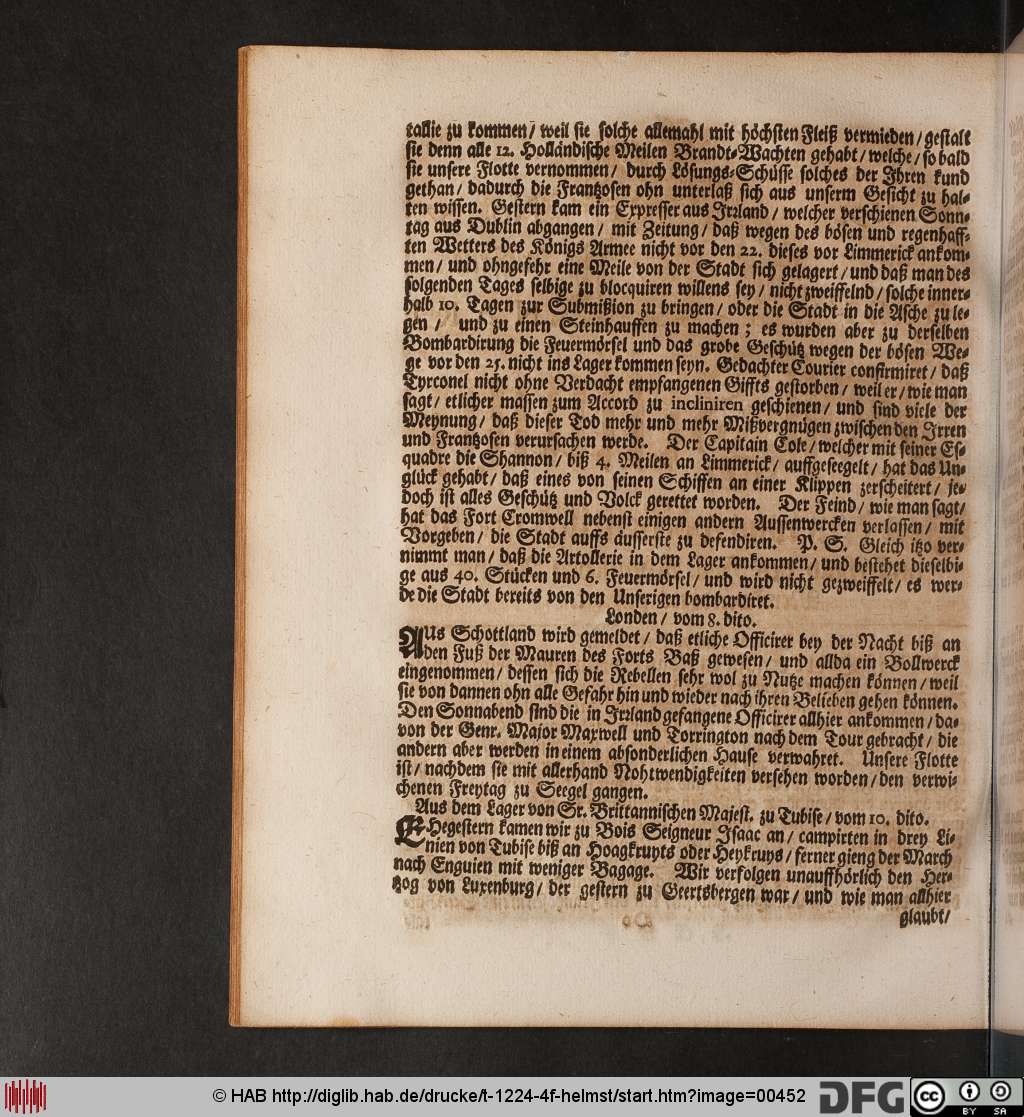 tallie zu kommen/ weil sie solche allemahl mit höchsten Fleiß vermieden/ gestalt
sie denn alle 12. Holländische Meilen Brandt-Wachten gehabt/ welche/ so bald
sie unsere Flotte vernommen/ durch Lösungs-Schüsse solches der Ihren kund
gethan/ dadurch die Frantzosen ohn unterlaß sich aus unserm Gesicht zu hal-
ten wissen. Gestern kam ein Expresser aus Irrland/ welcher verschienen Sonn-
tag aus Dublin abgangen/ mit Zeitung/ daß wegen des bösen und regenhaff-
ten Wetters des Königs Armee nicht vor den 22. dieses vor Limmerick ankom-
men/ und ohngefehr eine Meile von der Stadt sich gelagert/ und daß man des
folgenden Tages selbige zu blocquiren willens sey/ nicht zweiffelnd/ solche inner-
halb 10. Tagen zur Submißion zu bringen/ oder die Stadt in die Asche zu le-
gen/ und zu einen Steinhauffen zu machen; es wurden aber zu derselben
Bombardirung die Feuermörsel und das grobe Geschütz wegen der bösen We-
ge vor den 25. nicht ins Lager kommen seyn. Gedachter Courier confirmiret/ daß
Tyrconel nicht ohne Verdacht empfangenen Giffts gestorben/ weil er/ wie man
sagt/ etlicher massen zum Accord zu incliniren geschienen/ und sind viele der
Meynung/ daß dieser Tod mehr und mehr Mißvergnügen zwischen den Irren
und Frantzosen verursachen werde. Der Capitain Cole/ welcher mit seiner Es-
quadre die Shannon/ biß 4. Meilen an Limmerick/ auffgeseegelt/ hat das Un-
glück gehabt/ daß eines von seinen Schiffen an einer Klippen zerscheitert/ je-
doch ist alles Geschütz und Volck gerettet worden. Der Feind/ wie man sagt/
hat das Fort Cromwell nebenst einigen andern Aussenwercken verlassen/ mit
Vorgeben/ die Stadt auffs äusserste zu defendiren. P. S. Gleich itzo ver-
nimmt man/ daß die Artollerie in dem Lager ankommen/ und bestehet dieselbi-
ge aus 40. Stücken und 6. Feuermörsel/ und wird nicht gezweiffelt/ es wer-
de die Stadt bereits von den Unserigen bombardiret.
Londen/ vom 8. dito.
AUs Schottland wird gemeldet/ daß etliche Officirer bey der Nacht biß an
den Fuß der Mauren des Forts Baß gewesen/ und allda ein Bollwerck
eingenommen/ dessen sich die Rebellen sehr wol zu Nutze machen können/ weil
sie von dannen ohn alle Gefahr hin und wieder nach ihren Belieben gehen können.
Den Sonnabend sind die in Irrland gefangene Officirer allhier ankommen/ da-
von der Genr. Major Maxwell und Torrington nach dem Tour gebracht/ die
andern aber werden in einem absonderlichen Hause verwahret. Unsere Flotte
ist/ nachdem sie mit allerhand Nohtwendigkeiten versehen worden/ den verwi-
chenen Freytag zu Seegel gangen.
Aus dem Lager von Sr. Brittannischen Majest. zu Tubise/ vom 10. dito.
EHegestern kamen wir zu Bois Seigneur Isaac an/ campirten in drey Li-
nien von Tubise biß an Hoagkruyts oder Heykruys/ ferner gieng der March
nach Enguien mit weniger Bagage. Wir verfolgen unauffhörlich den Her-
tzog von Luxenburg/ der gestern zu Geertsbergen war/ und wie man allhier
glaubt/
© HAB http://diglib.hab.de/drucke/t-1224-4f-helmst/start.htm?image=00452
DFG
cc BY SA